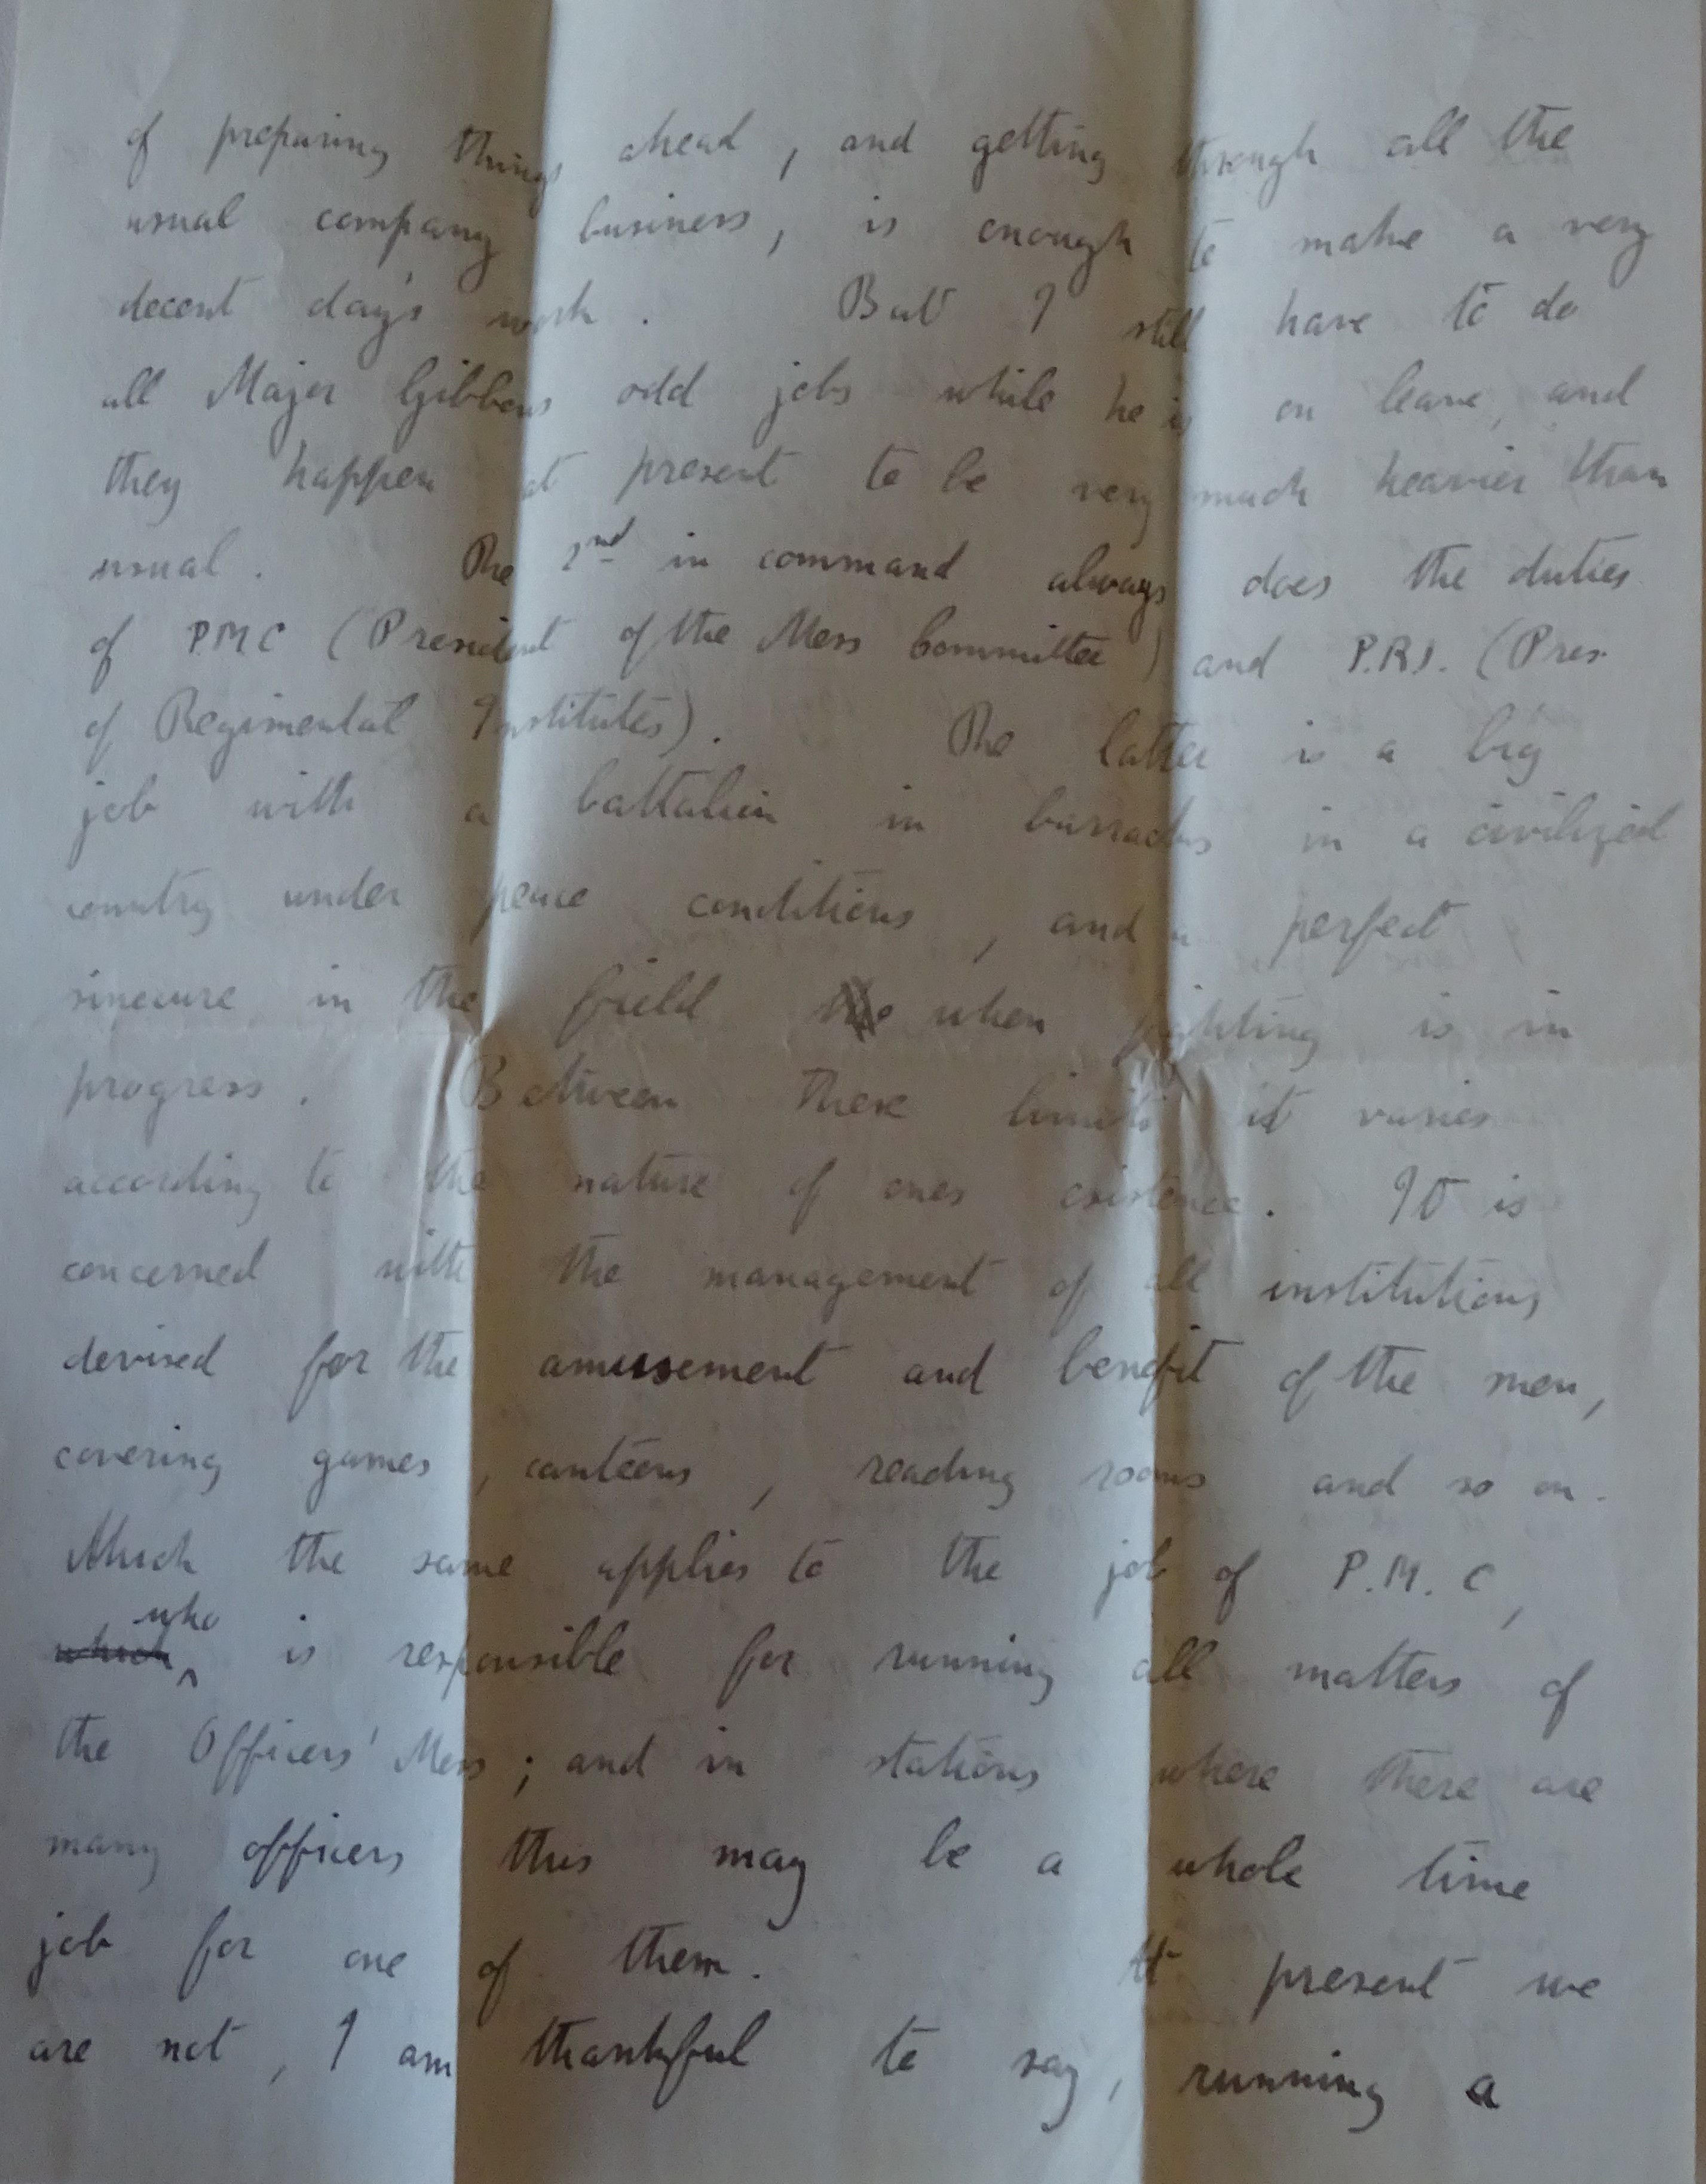 of preparing things ahead, and getting through all the
usual company business, is enough to make a very
decent day's work. But I still have to do
all Major Gibbons odd jobs while he is on leave, and
they happen at present to be very much heavier than
usual. The 2nd in command always does the duties
of PMC (President of the Mess Committee) and P.R.I. (Pres.
of Regimental Institutes). The latter is a big
job with a battalion in barracks in a civilized
country under peace conditions, and a perfect
sinecure in the field the when fighting is in
progress. Between these limits it varies
according to the nature of ones existence. It is
concerned with the management of all institutions
devised for the amusement and benefit of the men,
covering games, canteens, reading rooms and so on.
Much the same applies to the job of P.M.C,
which who is responsible for running all matters of
the Officers' Mess; and in stations where there are
many officers this may be a whole time
job for one of them. At present we
are not, I am thankful to say, running a